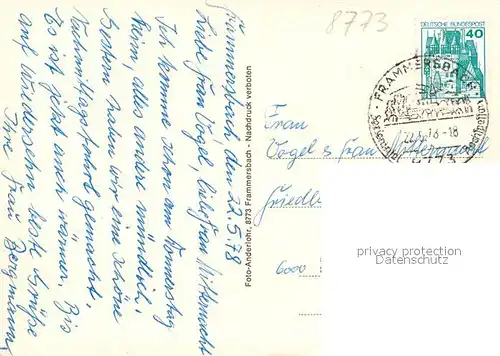 8773
DEUTSCHE BUNDESPOST
40
FRAMMERSBACH
22.5.78-18
8773
Frammersbach, den 22.5.78
Liebe Frau Vogel, liebe Frau Mitternacht
Ich komme schon am Donnerstag
heim, alles andere mündlich.
Gestern haben wir eine schöne
Nachmittagsfahrt gemacht.
Es ist jetzt auch wärmer. Bis
auf Wiedersehn beste Grüße
Ihre Frau Bergmann
Foto-Anderlohr, 8773 Frammersbach - Nachdruck verboten
Frau
Vogel & Frau Mitternacht
Friedb
6000
privacy protection
Datenschutz